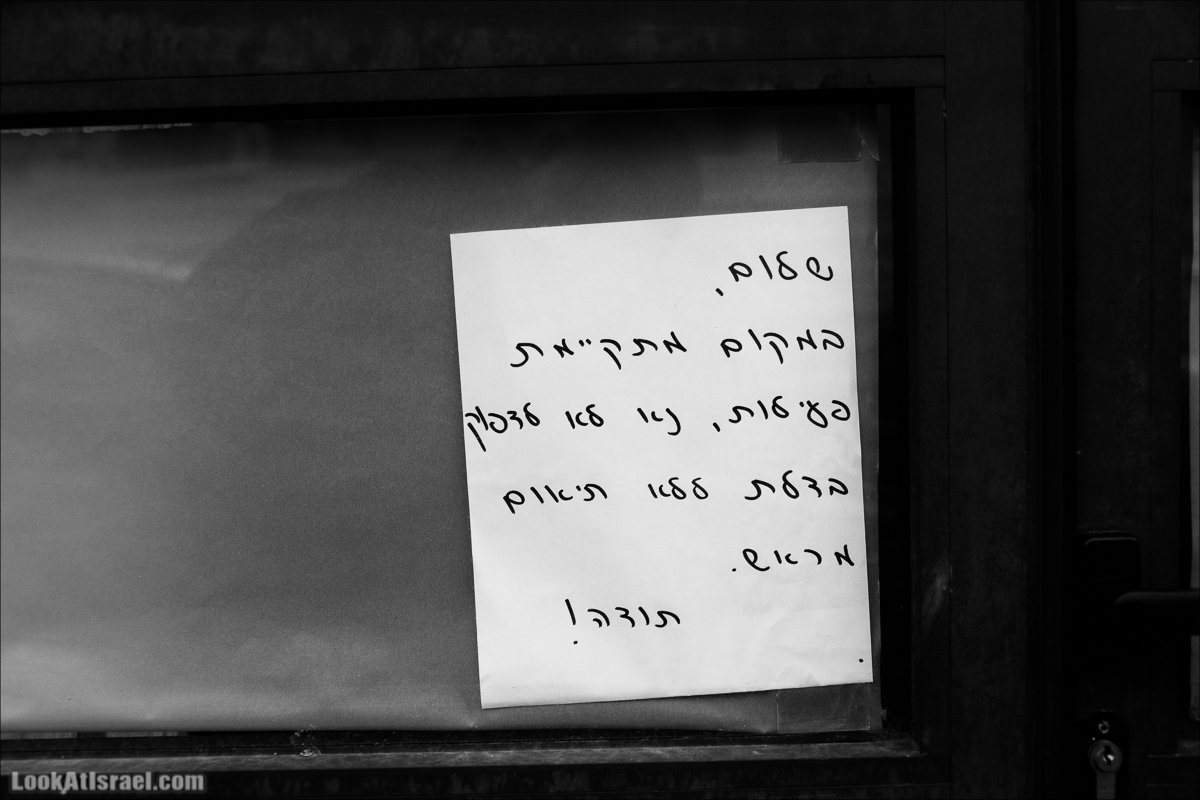 שלום,
במקום מתקיימת
פעילות, נא לא לדפוק
בדלת ללא תיאום
מראש.
תודה!
LookAtIsrael.com